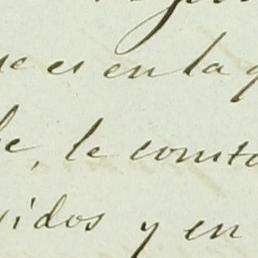 ue es en la q
fe, le consta
vidos y en